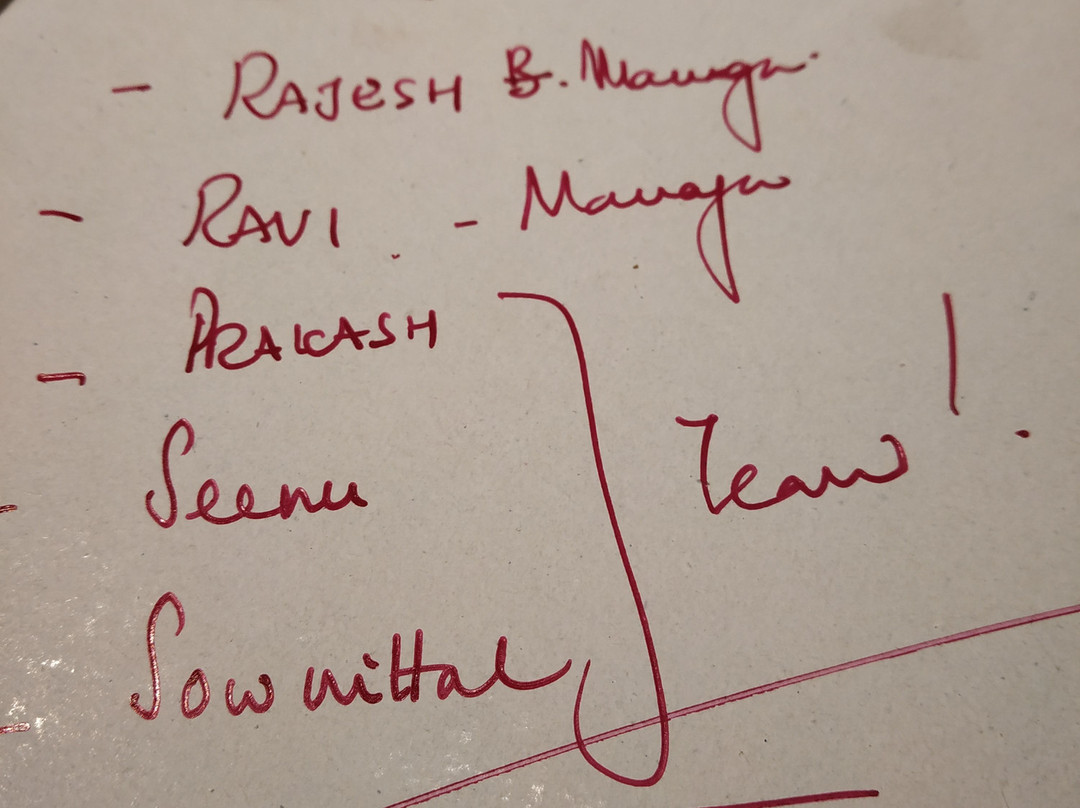 - RAJESH B. Manager
- RAVI - Manager
- PRAKASH
- Seenu Team
-